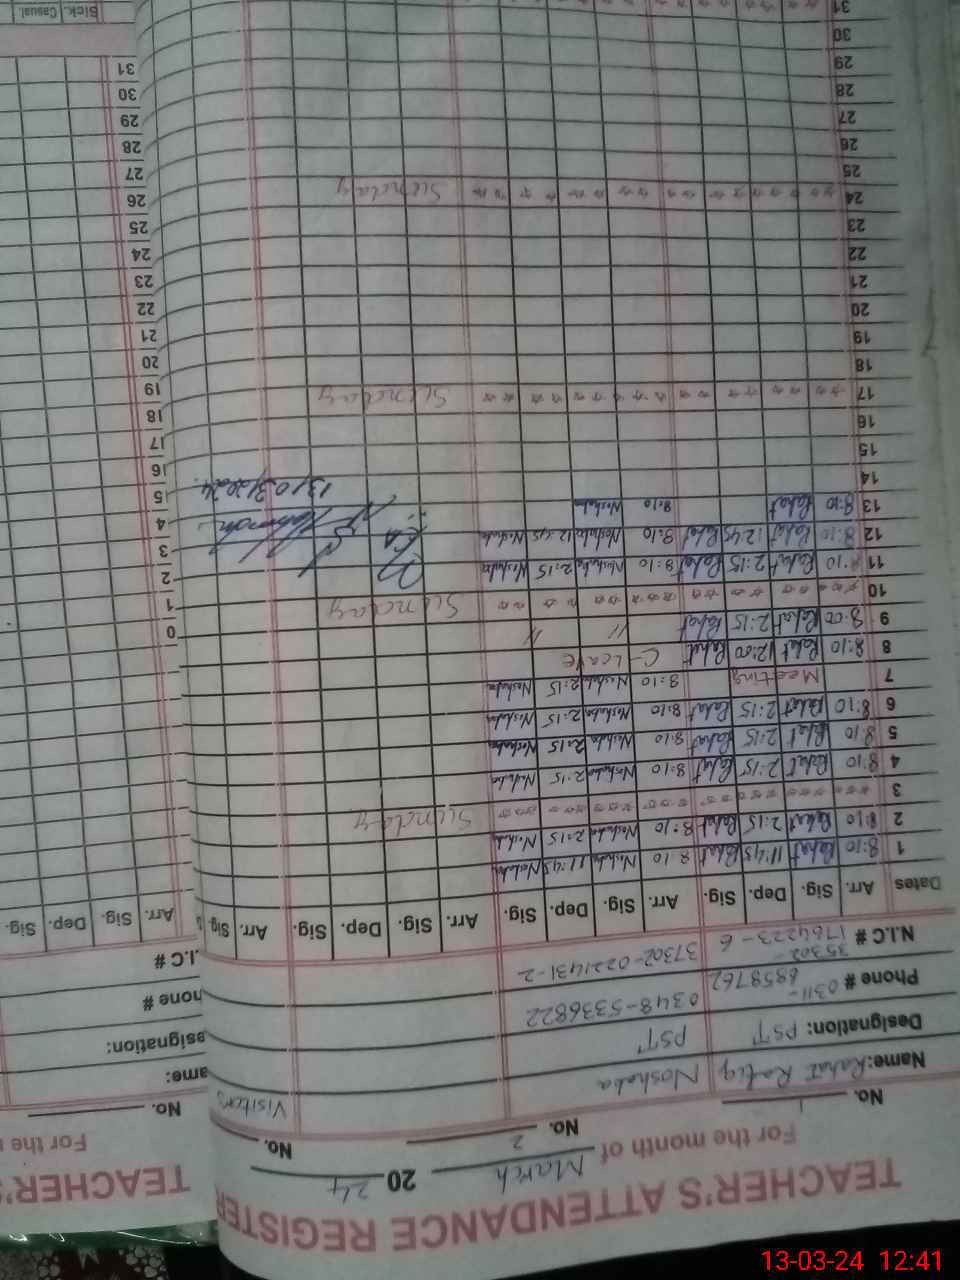 TEACHER'S ATTENDANCE REGISTER
For the month of March 2024
No. 1 No. 2 No.
Name: Rahat Rafiq Noshaba Visitors
Designation: PST PST
Phone # 0311-6858762 0348-5336822
N.I.C # 35302-1764223-6 37302-0221431-2
Dates Arr. Sig. Dep. Sig. Arr. Sig. Dep. Sig. Arr. Sig. Dep. Sig. Arr. Sig.
1 8:10 Rahat 11:45 Rahat 8:10 Noshaba 11:45 Noshaba
2 8:10 Rahat 2:15 Rahat 8:10 Noshaba 2:15 Noshaba
3 Sunday
4 8:10 Rahat 2:15 Rahat 8:10 Noshaba 2:15 Noshaba
5 8:10 Rahat 2:15 Rahat 8:10 Noshaba 2:15 Noshaba
6 8:10 Rahat 2:15 Rahat 8:10 Noshaba 2:15 Noshaba
7 Meeting 8:10 Noshaba 2:15 Noshaba
8 8:10 Rahat 12:00 Rahat C-Leave
9 8:00 Rahat 2:15 Rahat " "
10 Sunday
11 8:10 Rahat 2:15 Rahat 8:10 Noshaba 2:15 Noshaba
12 8:10 Rahat 12:45 Rahat 8:10 Noshaba 12:45 Noshaba
13 8:10 Rahat 8:10 Noshaba
13/03/2024.
14
15
16
17 Sunday
18
19
20
21
22
23
24 Sunday
25
26
27
28
29
30
31
TEACHER'S
For the
No.
ame:
esignation:
hone #
.I.C #
Arr. Sig. Dep. Sig.
0
1
2
3
4
5
16
17
18
19
20
21
22
23
24
25
26
27
28
29
30
31
Sick. Casual
13-03-24 12:41